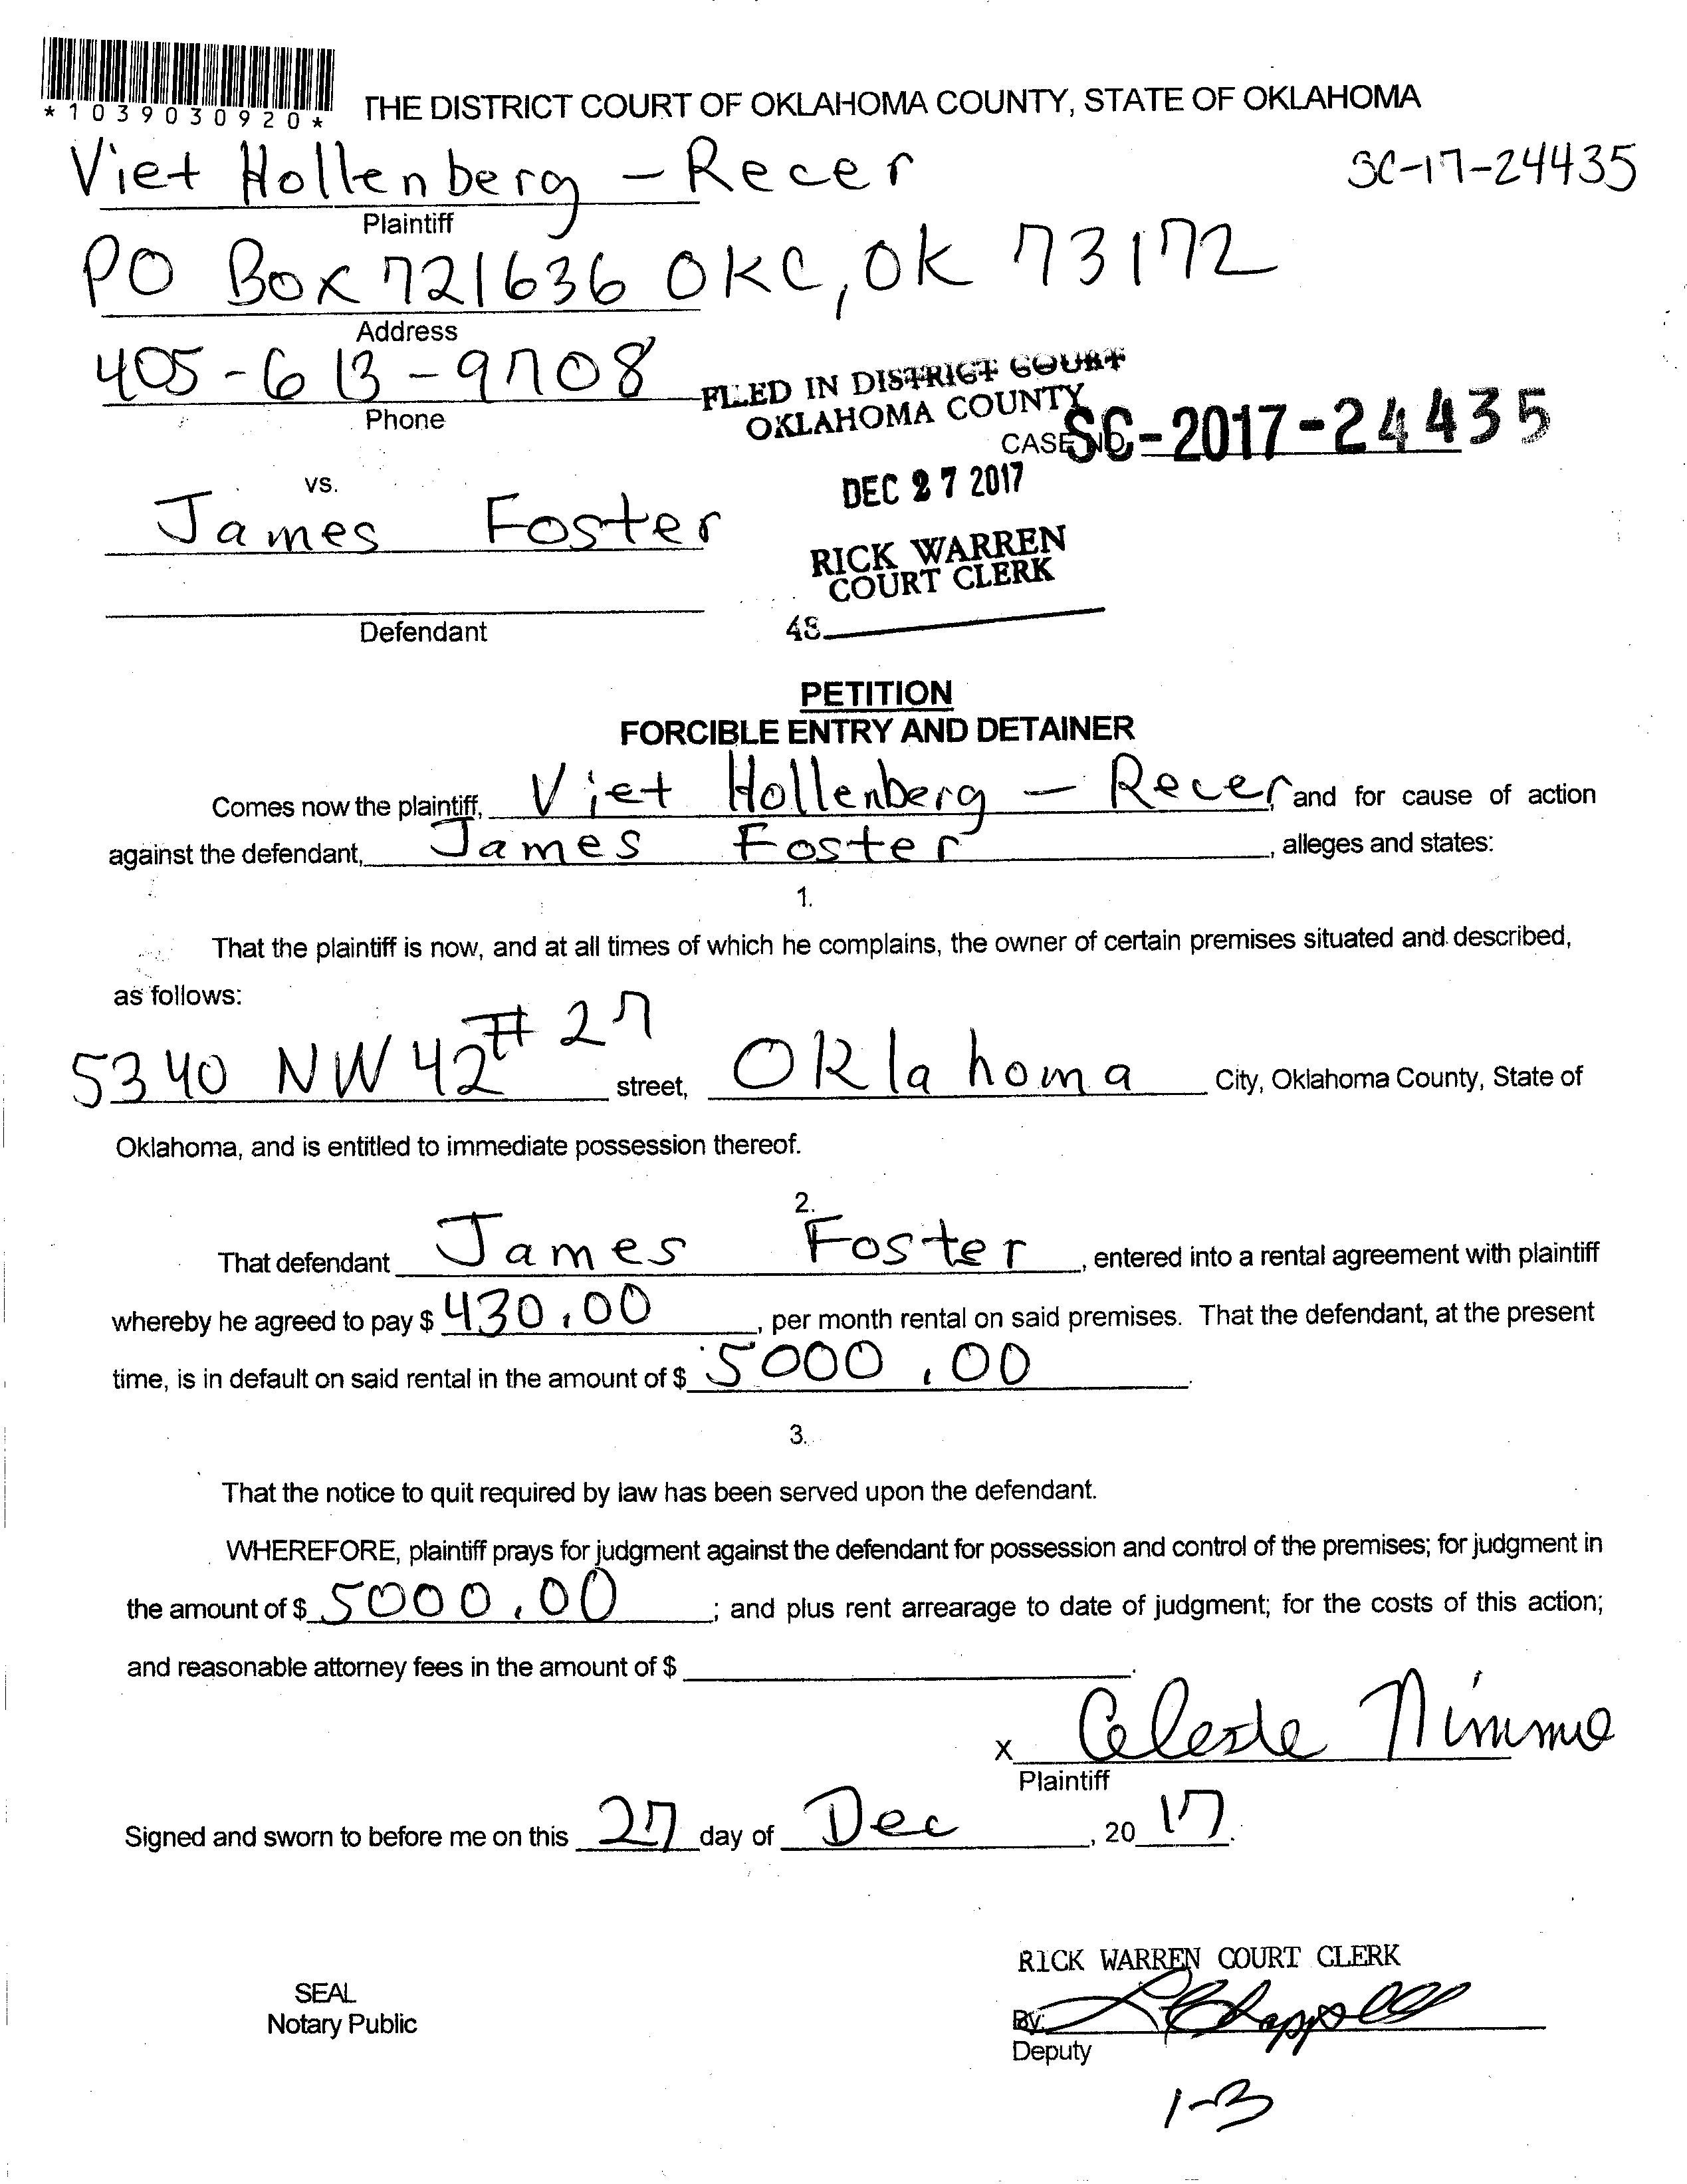 *1039030920*
THE DISTRICT COURT OF OKLAHOMA COUNTY, STATE OF OKLAHOMA
Viet Hollenberg - Recer
SC-17-24435
Plaintiff
PO Box 721636 OKC, OK 73172
Address
405-613-9708
Phone
FILED IN DISTRICT COURT
OKLAHOMA COUNTY
CASE NO. SC-2017-24435
DEC 27 2017
vs.
James Foster
RICK WARREN
COURT CLERK
48
Defendant
PETITION
FORCIBLE ENTRY AND DETAINER
Comes now the plaintiff, Viet Hollenberg - Recer, and for cause of action
against the defendant, James Foster, alleges and states:
1.
That the plaintiff is now, and at all times of which he complains, the owner of certain premises situated and described,
as follows:
5340 NW 42 # 27 street, Oklahoma City, Oklahoma County, State of
Oklahoma, and is entitled to immediate possession thereof.
2.
That defendant James Foster, entered into a rental agreement with plaintiff
whereby he agreed to pay $ 430.00, per month rental on said premises. That the defendant, at the present
time, is in default on said rental in the amount of $ 5000.00.
3.
That the notice to quit required by law has been served upon the defendant.
WHEREFORE, plaintiff prays for judgment against the defendant for possession and control of the premises; for judgment in
the amount of $ 5000.00; and plus rent arrearage to date of judgment; for the costs of this action;
and reasonable attorney fees in the amount of $ .
X Celeste Nimmo
Plaintiff
Signed and sworn to before me on this 27 day of Dec, 2017.
RICK WARREN COURT CLERK
SEAL
Notary Public
By: Chappell
Deputy
1-3